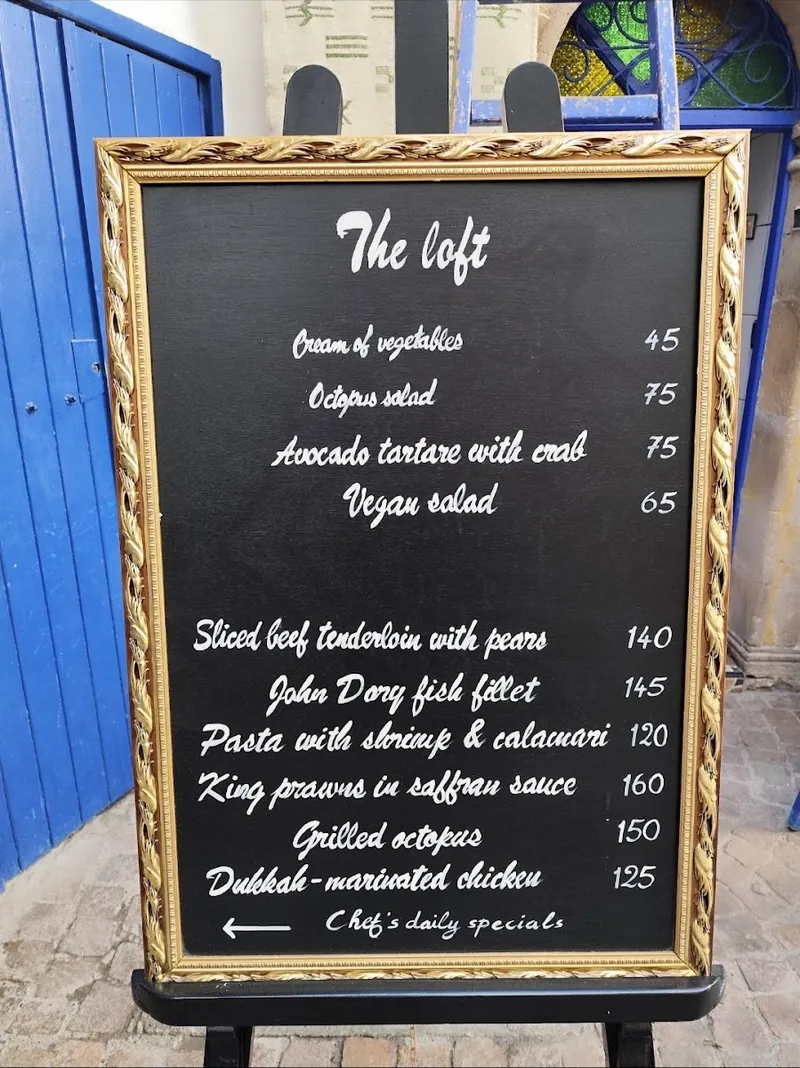 The loft
Cream of vegetables 45
Octopus salad 75
Avocado tartare with crab 75
Vegan salad 65
Sliced beef tenderloin with pears 140
John Dory fish fillet 145
Pasta with shrimp & calamari 120
King prawns in saffran sauce 160
Grilled octopus 150
Dukkah-marinated chicken 125
← Chef's daily specials